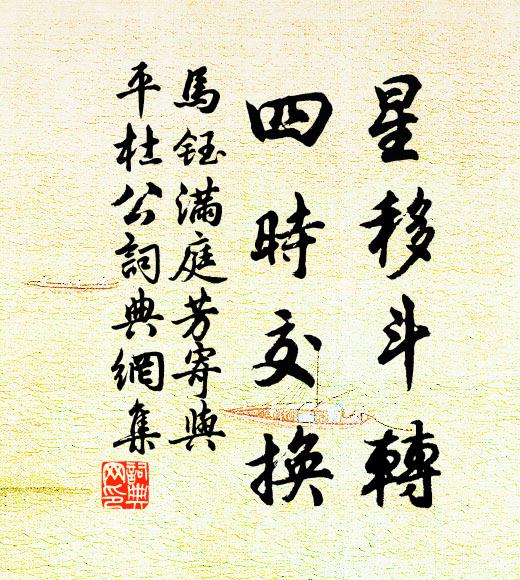 星移斗轉
四時交換
馬鈺滿庭芳寄與
平杜公詞典網集
詞典
网印